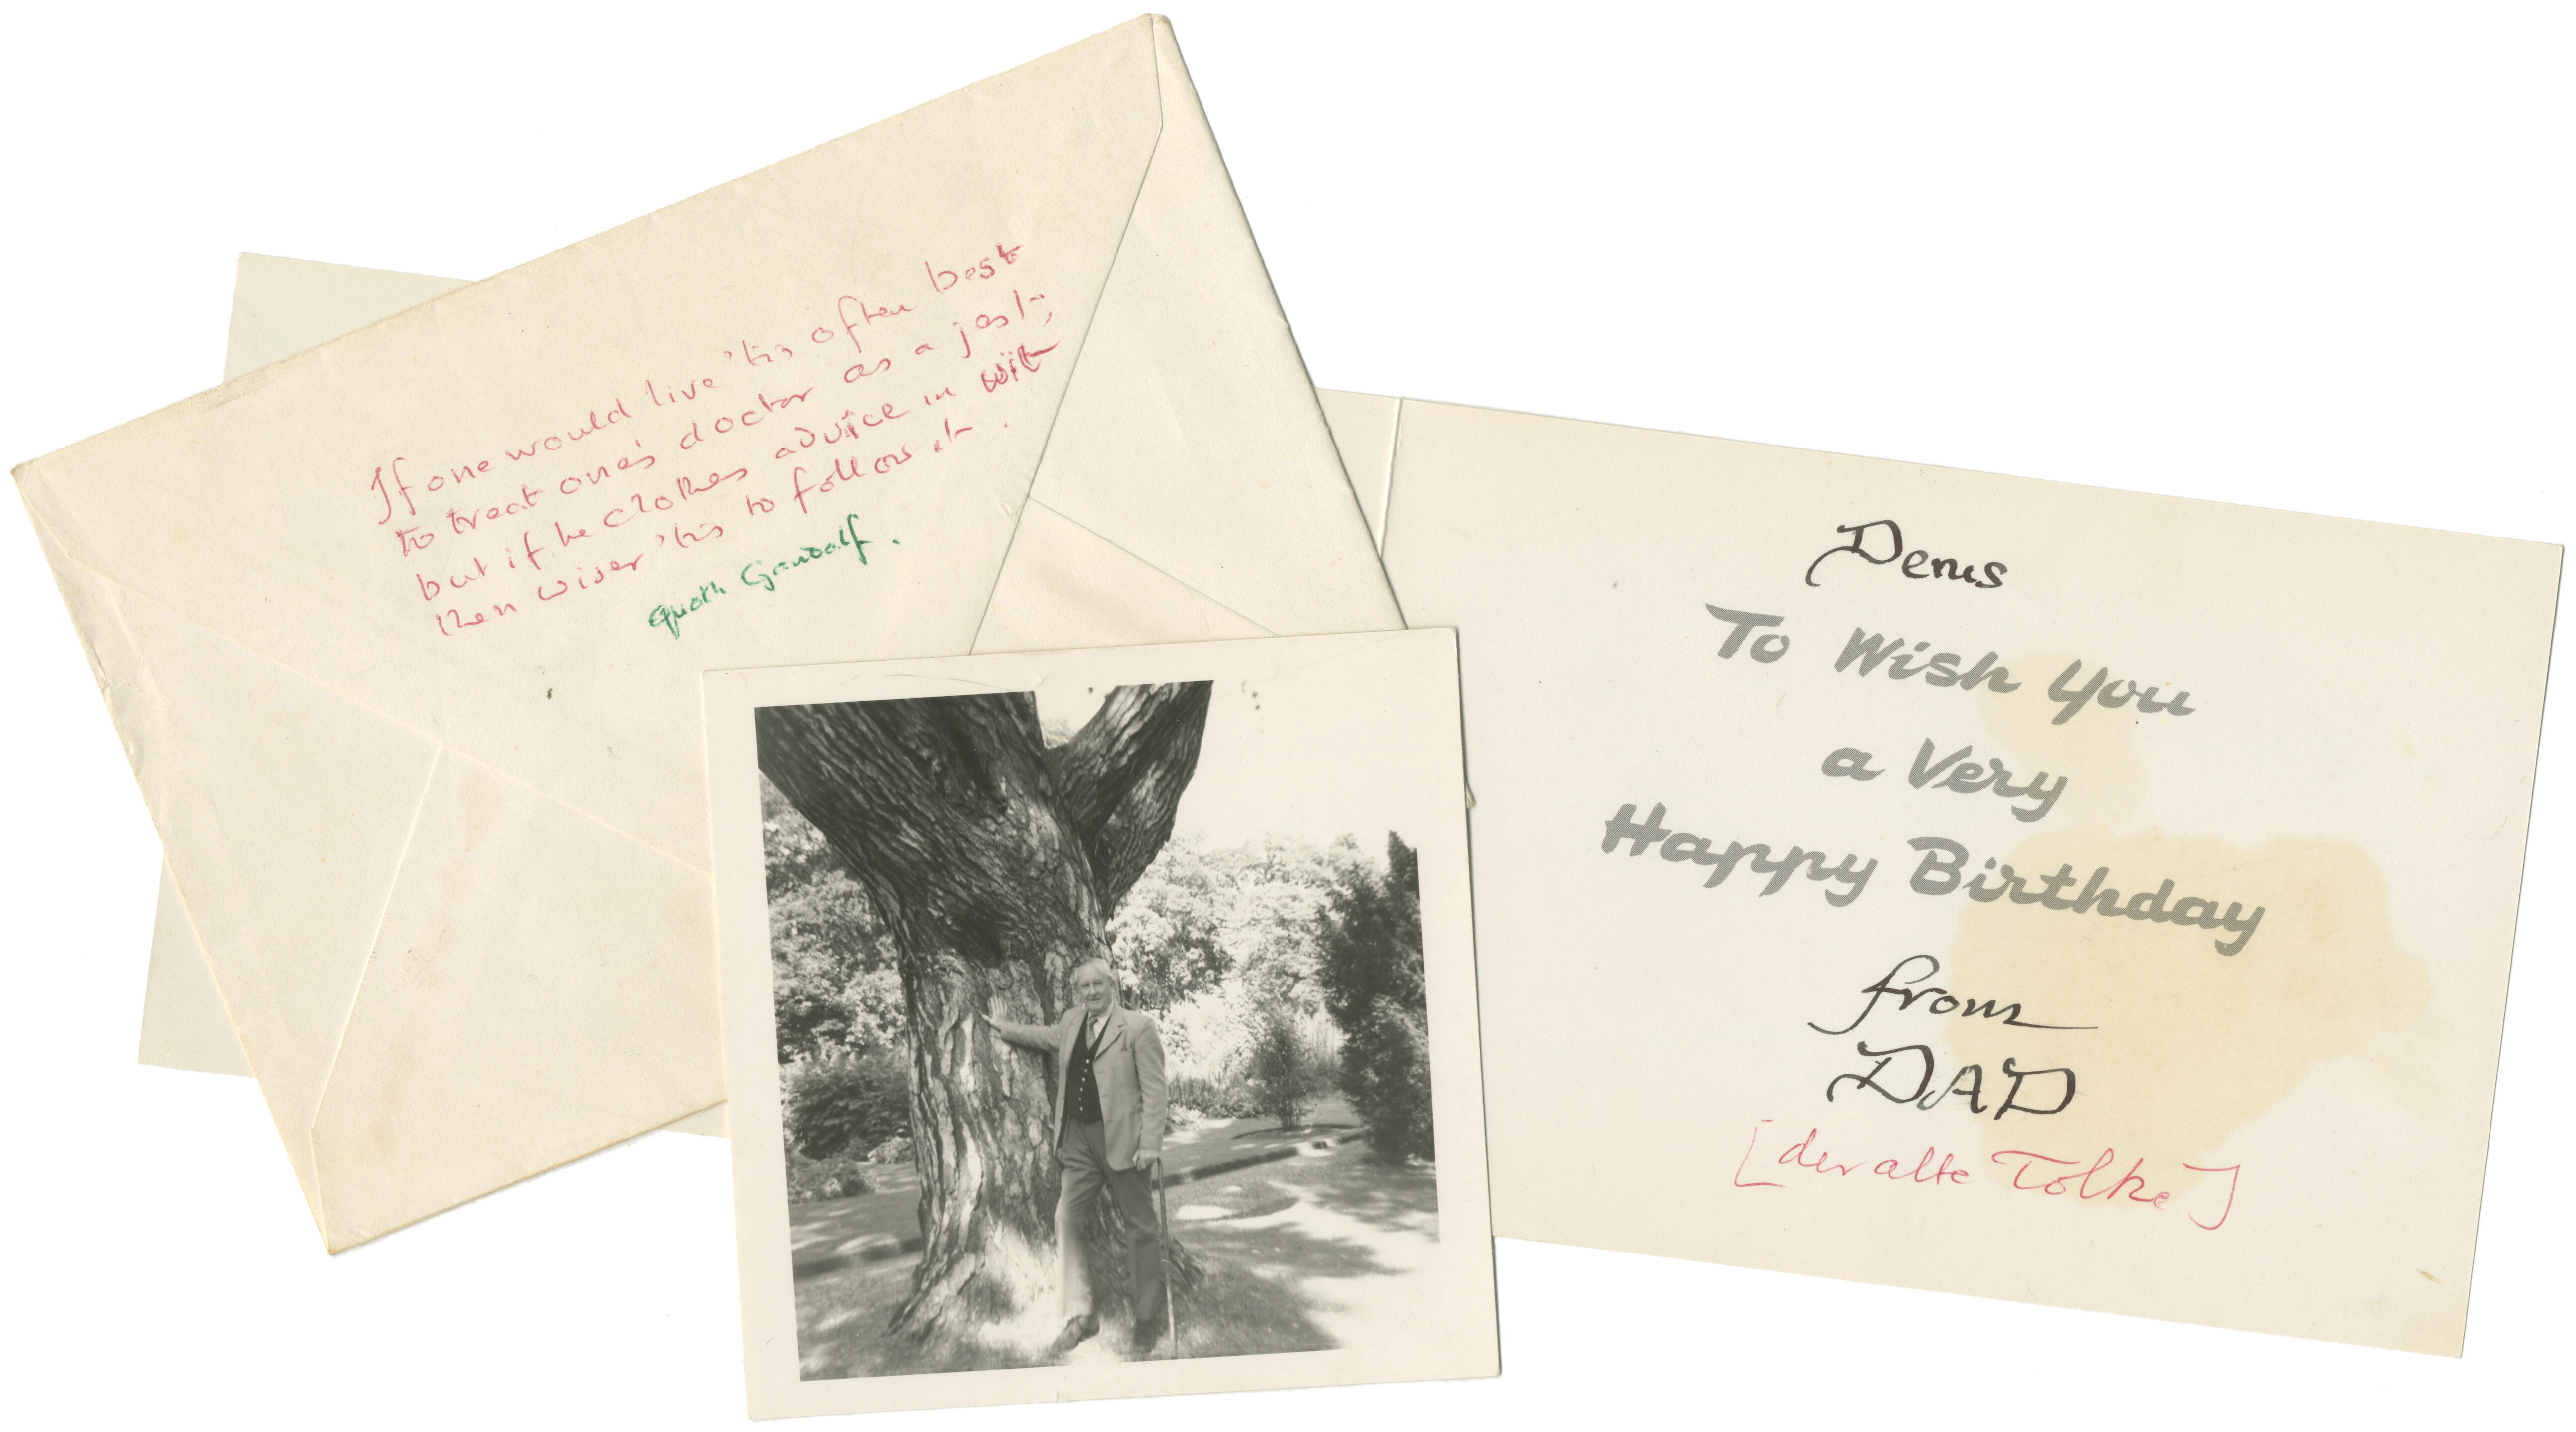 If one would live 'tis often best
to treat one's doctor as a jest;
but if he clothes advice in wit
then wiser 'tis to follow it.
quoth Gandalf.
Denis
To Wish You
a Very
Happy Birthday
from
DAD
[der alte Tolke]